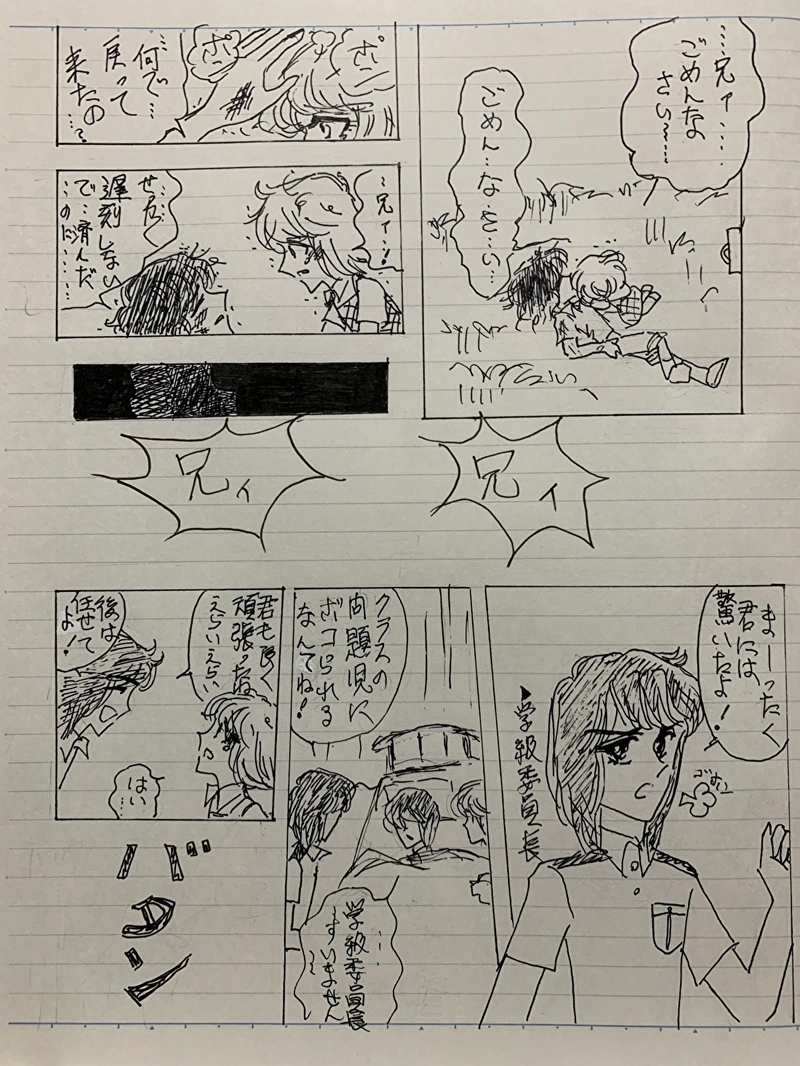 …兄ィ…
ごめんな
さい……
ごめん…な…さ…い…
ポン
ポン
何で…
戻って
来たの
…?
…兄ィ…!
…せっかく
遅刻しない
で…済んだ
…のに……
兄ィ
兄ィ
まーったく
君には
驚いたよ!
▶学級委員長
クラスの
問題児に
ボコられる
なんてね!
…学級委員長
…すいません
君も良く
頑張ったね
えらいえらい
後は
任せて
よ!
はい…
バタン